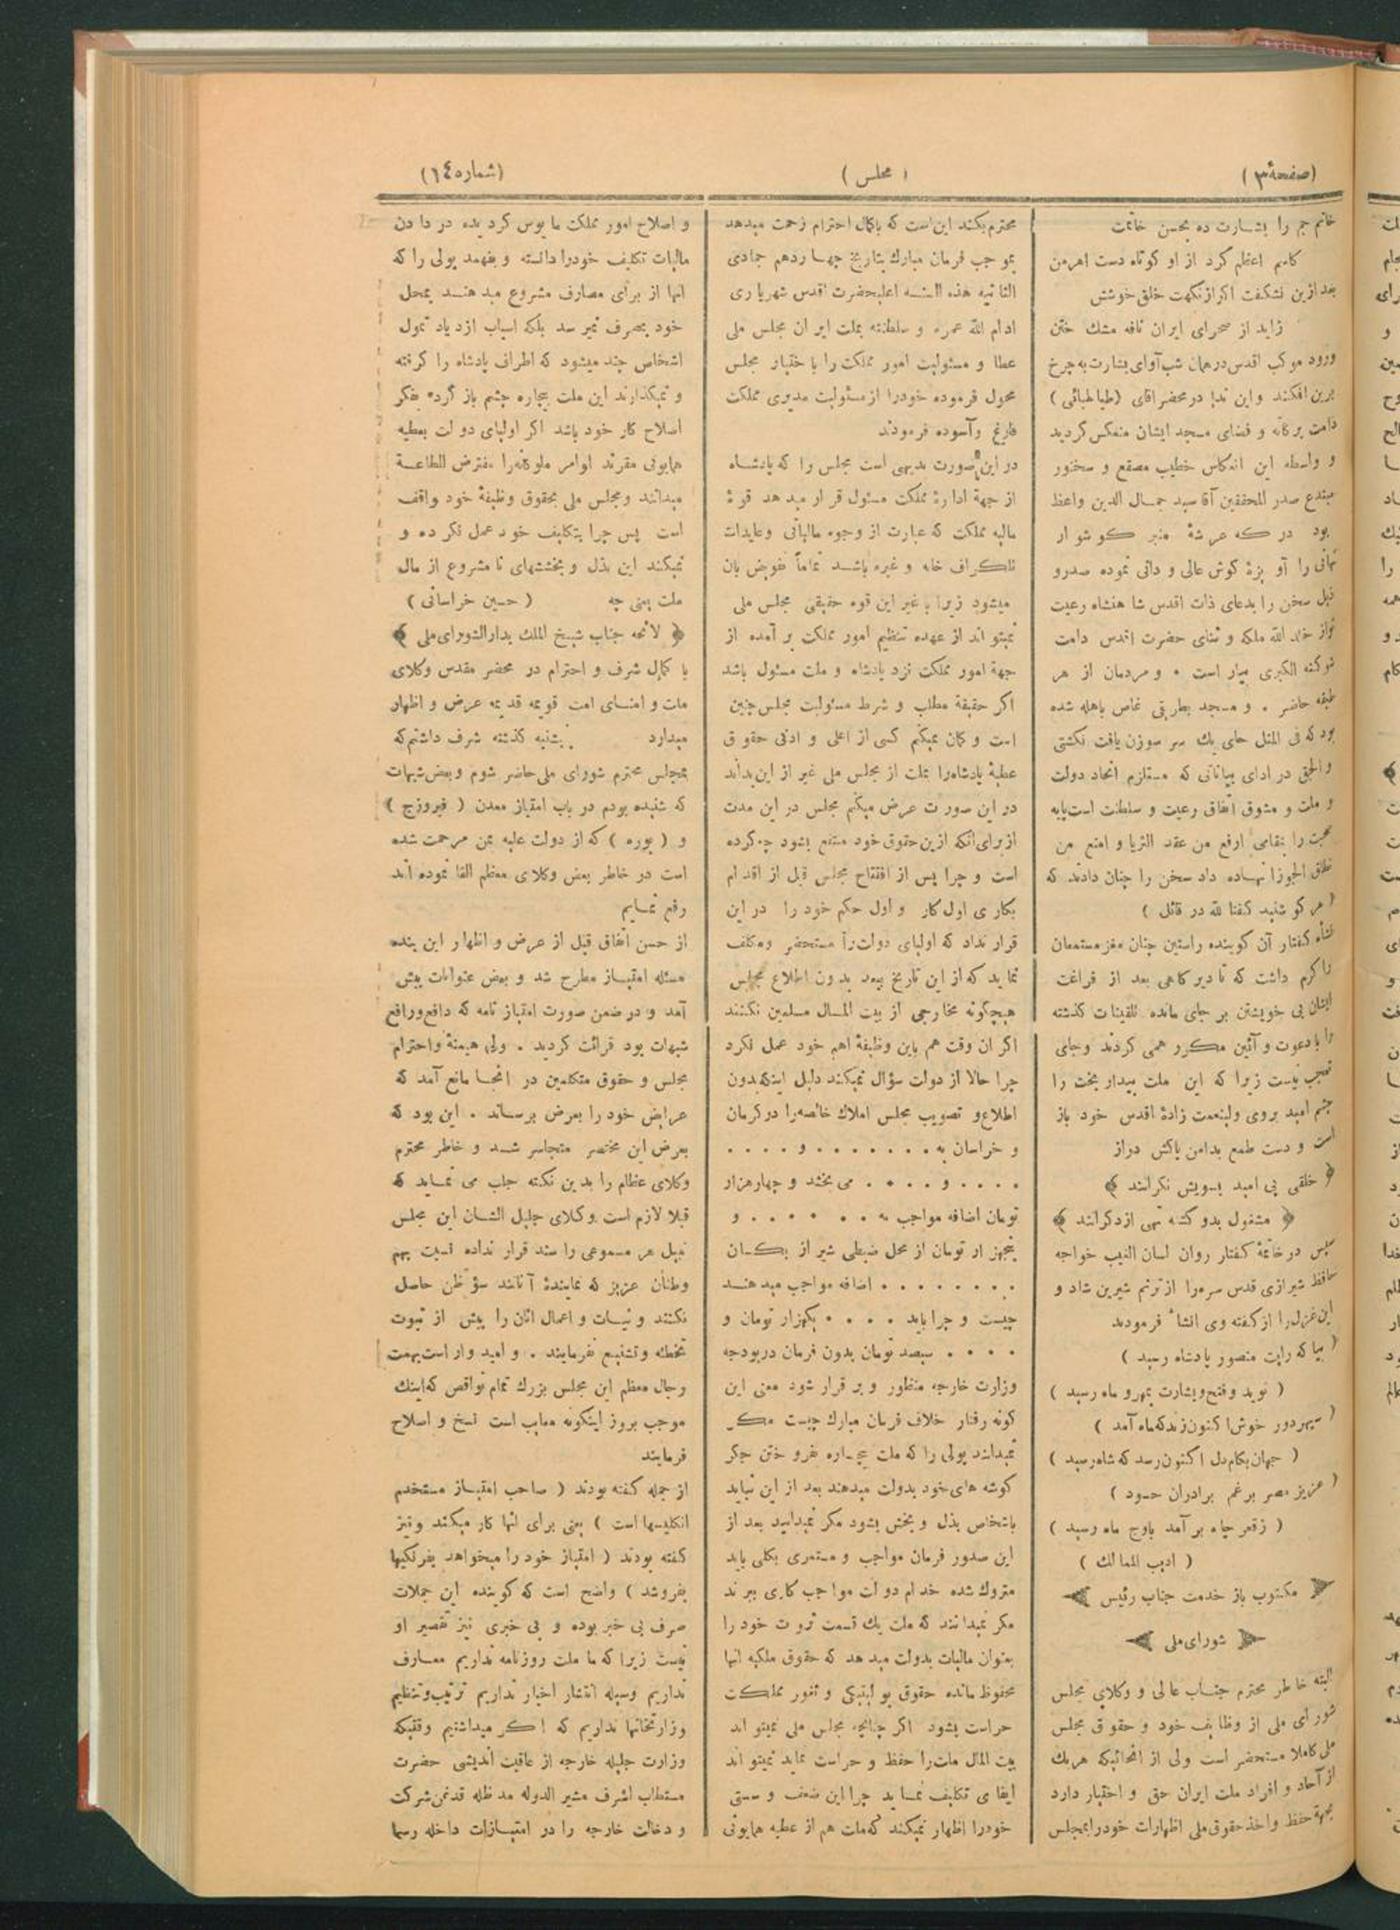 (صفحهٔ ۳)
( مجلس )
(شماره ١٤)
خاتم جم را بشارت ده بحسن خاتمت
کاسم اعظم کرد از او کوتاه دست اهرمن
بعد ازین نشکفت اکر از نکهت خلق خوشش
زاید از صحرای ایران نافه مشك ختن
ورود موکب اقدس در همان شب آوای بشارت به چرخ
برین افکند واین ندا در محضر اقای (طباطبائی)
دامت برکاته و فضای مسجد ایشان منعکس کردید
و واسطه این انعکاس خطیب مصقع و سخنور
مبتدع صدر المحققین آقا سید جمال الدین واعظ
بود در که عرشهٔ منبر کوشوار
نهانی را آو یزهٔ کوش عالی و دانی نموده صدرو
ذیل سخن را بدعای ذات اقدس شاهنشاه رعیت
نواز خلد الله ملکه و ثنای حضرت اقدس دامت
شوکته الکبری میار است ٠ و مردمان از هر
طبقه حاضر . و مسجد بطریقی غاص باهله شده
بود که فی المثل جای یك سر سوزن یافت نکشتی
و الحق در ادای بیاناتی که مستلزم اتحاد دولت
و ملت و مشوق اتفاق رعیت و سلطنت است پایه
محبت را بمقامی ارفع من عقد الثریا و امنع من
نطاق الجوزا نهاده داد سخن را چنان دادند که
( هر کو شنید کفتا لله در قائل )
نشأه کفتار آن کوینده راستین چنان مغز مستمعان
را کرم داشت که تا دیر کاهی بعد از فراغت
ایشان بی خویشتن بر جای مانده تلقینات کذشته
را با دعوت و آئین مکرر همی کردند وجای
تعجب نیست زیرا که این ملت بیدار بخت را
چشم امید بروی ولینعمت زادهٔ اقدس خود باز
است و دست طمع بدامن پاکش دراز
﴿ خلقی بی امید بسویش نکرانند ﴾
﴿ مشغول بدو کشته تهی از دکرانند ﴾
سپس در خاتمهٔ کفتار روان لسان الغیب خواجه
حافظ شیرازی قدس سره را از ترنم شیرین شاد و
این غزل را از کفته وی انشاء فرمودند
( بیا که رایت منصور پادشاه رسید )
( نوید و فتح و بشارت بمهر و ماه رسید )
( سپهر دور خوش اکنون زند که ماه آمد )
( جهان بکام دل اکنون رسد که شاه رسید )
( عزیز مصر برغم برادران حسود )
( ز قعر چاه بر آمد باوج ماه رسید )
( ادیب الممالك )
مکتوب باز خدمت جناب رئیس
شورای ملی
البته خاطر محترم جناب عالی و وکلای مجلس
شورای ملی از وظایف خود و حقوق مجلس
ملی کاملا مستحضر است ولی از آنجائیکه هریك
از آحاد و افراد ملت ایران حق و اختیار دارد
بجهة حفظ واخذ حقوق ملی اظهارات خودرا بمجلس
محترم بکند این است که با کمال احترام زحمت میدهد
بموجب فرمان مبارك بتاریخ چهاردهم جمادی
الثانیه هذه السنه اعلیحضرت اقدس شهریاری
ادام الله عمره و سلطنته بملت ایران مجلس ملی
عطا و مسئولیت امور مملکت را با ختیار مجلس
محول فرموده خودرا از مسئولیت مدیری مملکت
فارغ وآسوده فرمودند
در این صورت بدیهی است مجلس را که پادشاه
از جهة ادارهٔ مملکت مسئول قرار میدهد قوهٔ
مالیه مملکت که عبارت از وجوه مالیاتی وعایدات
تلکراف خانه و غیره باشد تماماً تفویض بان
میشود زیرا با غیر این قوه حقیقی مجلس ملی
نمیتواند از عهده تنظیم امور مملکت بر آمده از
جهة امور مملکت نزد پادشاه و ملت مسئول باشد
اکر حقیقة مطلب و شرط مسئولیت مجلس چنین
است و کمان میکنم کسی از اعلی و ادنی حقوق
عطیهٔ پادشاه را بملت از مجلس ملی غیر از این بداند
در این صورت عرض میکنم مجلس در این مدت
از برای آنکه ازین حقوق خود منتفع بشود چه کرده
است و چرا پس از افتتاح مجلس قبل از اقدام
بکاری اول کار و اول حکم خود را در این
قرار نداد که اولیای دولت را مستحضر و مکلف
نماید که از این تاریخ ببعد بدون اطلاع مجلس
هیچکونه مخارجی از بیت المال مسلمین نکنند
اکر ان وقت هم باین وظیفهٔ اهم خود عمل نکرد
چرا حالا از دولت سؤال نمیکند دلیل اینکه بدون
اطلاع و تصویب مجلس املاك خالصه را در کرمان
و خراسان به ٠ ٠ ٠ ٠ ٠ ٠ ٠ و ٠ ٠ ٠ ٠
٠ ٠ ٠ ٠ و ٠ ٠ ٠ ٠ می بخشد و چهار هزار
تومان اضافه مواجب به ٠ ٠ ٠ ٠ ٠ ٠ و
پنجهزار تومان از محل ضبطی شیراز بکسان
٠ ٠ ٠ ٠ ٠ ٠ ٠ ٠ اضافه مواجب میدهند
چیست و چرا باید ٠ ٠ ٠ ٠ یکهزار تومان و
٠ ٠ ٠ ٠ سیصد تومان بدون فرمان در بودجه
وزارت خارجه منظور و بر قرار شود معنی این
کونه رفتار خلاف فرمان مبارك چیست مکر
نمیدانند پولی را که ملت بیچاره بفروختن جکر
کوشه های خود بدولت میدهند بعد از این نباید
باشخاص بذل و بخش بشود مکر نمیدانید بعد از
این صدور فرمان مواجب و مستمری بکلی باید
متروك شده خدام دولت مواجب کاری ببرند
مکر نمیدانند که ملت یك قسمت ثروت خود را
بعنوان مالیات بدولت میدهد که حقوق ملکیه آنها
محفوظ مانده حقوق پولیتیکی و ثغور مملکت
حراست بشود اکر چنانچه مجلس ملی نمیتواند
بیت المال ملت را حفظ و حراست نماید نمیتواند
ایفای تکلیف نماید چرا این ضعف و سستی
خودرا اظهار نمیکند که ملت هم از عطیه همایونی
و اصلاح امور مملکت مایوس کردیده در دادن
مالیات تکلیف خودرا دانسته و بفهمد پولی را که
انها از برای مصارف مشروع میدهند بمحل
خود بمصرف نمیرسد بلکه اسباب ازدیاد تمول
اشخاص چند میشود که اطراف پادشاه را کرفته
و نمیکذارند این ملت بیچاره چشم باز کرده بفکر
اصلاح کار خود باشد اکر اولیای دولت بعطیه
همایونی مقرند اوامر ملوکانه را مفترض الطاعة
میدانند و مجلس ملی بحقوق وظیفهٔ خود واقف
است پس چرا بتکلیف خود عمل نکرده و
نمیکند این بذل و بخششهای نا مشروع از مال
ملت یعنی چه ( حسین خراسانی )
﴿ لائحه جناب شیخ الملك بدار الشورای ملی ﴾
با کمال شرف و احترام در محضر مقدس وکلای
ملت و امنای امت قویمه قدیمه عرض و اظهار
میدارد پنشنبه کذشته شرف داشتم که
بمجلس محترم شورای ملی حاضر شوم وبعض شبهات
که شنیده بودم در باب امتیاز معدن ( فیروزج )
و ( بوره ) که از دولت علیه بمن مرحمت شده
است در خاطر بعض وکلای معظم القا نموده اند
رفع نمایم
از حسن اتفاق قبل از عرض و اظهار این بنده
مسئله امتیاز مطرح شد و بعض عنوانات پیش
آمد و در ضمن صورت امتیاز نامه که دافع و رافع
شبهات بود قرائت کردید . ولی هیمنهٔ واحترام
مجلس و حقوق متکلمین در آنجا مانع آمد که
عرایض خود را بعرض برساند . این بود که
بعرض این مختصر متجاسر شد و خاطر محترم
وکلای عظام را بدین نکته جلب می نماید که
قبلا لازم است وکلای جلیل الشان این مجلس
نبیل هر مسموعی را سند قرار نداده نسبت بهم
وطنان عزیز که نمایندهٔ آنانند سؤ ظن حاصل
نکنند و نیات و اعمال انان را پیش از ثبوت
تخطئه و تشنیع نفرمایند . و امید وار است بهمت
رجال معظم این مجلس بزرك تمام نواقص که اینك
موجب بروز اینکونه معایب است نسخ و اصلاح
فرمایند
از جمله کفته بودند ( صاحب امتیاز مستخدم
انکلیسها است ) یعنی برای انها کار میکند ونیز
کفته بودند ( امتیاز خود را میخواهد بفرنکیها
بفروشد ) واضح است که کوینده این جملات
صرف بی خبر بوده و بی خبری نیز تقصیر او
نیست زیرا که ما ملت روزنامه نداریم معارف
نداریم وسیله انتشار اخبار نداریم ترتیب وتنظیم
وزارتخانها نداریم که اکر میداشتیم وقتیکه
وزارت جلیله خارجه از عاقبت اندیشی حضرت
مستطاب اشرف مشیر الدوله مد ظله قدغن شرکت
و دخالت خارجه را در امتیازات داخله رسما